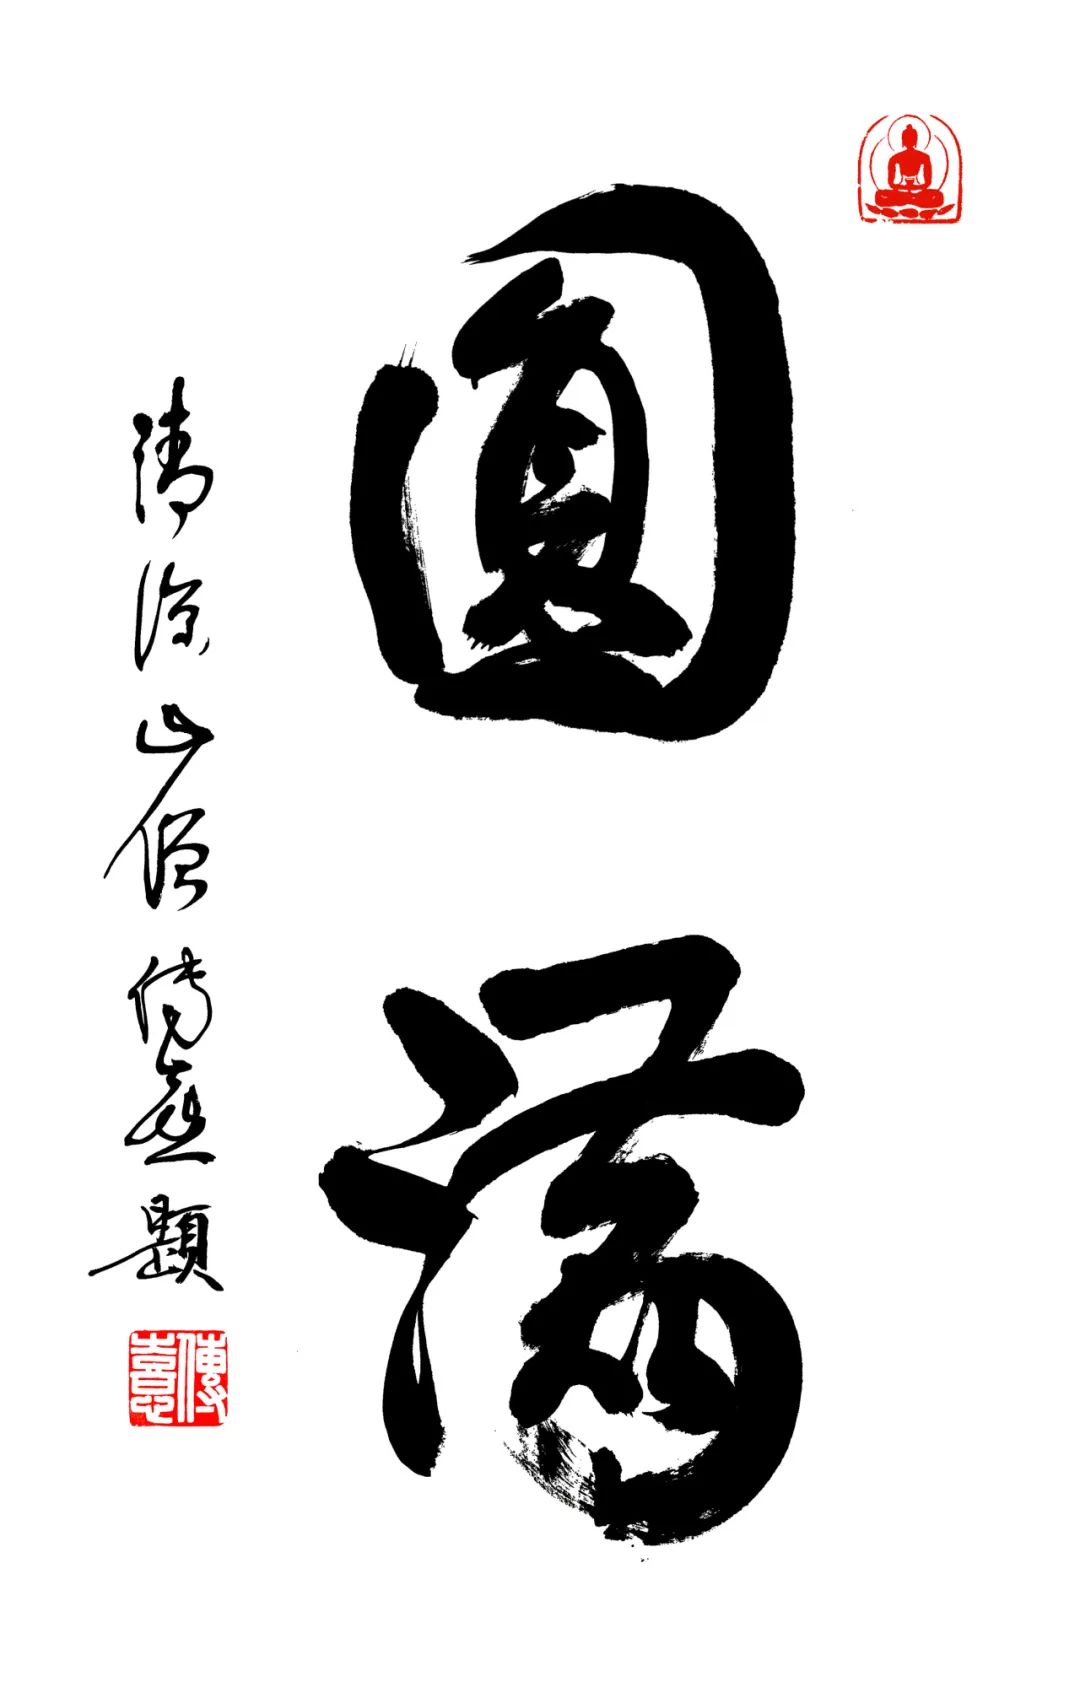 圓滿
清涼山僧傳意題
傳意